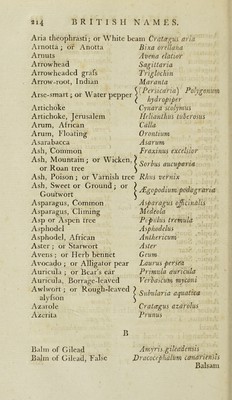 214 BRITISH NAMES.
Aria theophrasti; or White beam Cratægus aria
Arnotta; or Anotta Bixa orellana
Arnuts Avena elatior
Arrowhead Sagittaria
Arrowheaded grass Triglochin
Arrow-root, Indian Maranta
Arse-smart; or Water pepper { (Persicaria) Polygonum
hydropiper
Artichoke Cynara scolymus
Artichoke, Jerusalem Helianthus tuberosus
Arum, African Calla
Arum, Floating Orontium
Asarabacca Asarum
Ash, Common Fraxinus excelsior
Ash, Mountain; or Wicken,
or Roan tree } Sorbus aucuparia
Ash, Poison; or Varnish tree Rhus vernix
Ash, Sweet or Ground; or
Goutwort } Ægopodium podagraria
Asparagus, Common Asparagus officinalis
Asparagus, Climing Medeola
Asp or Aspen tree Populus tremula
Asphodel Asphodelus
Asphodel, African Anthericum
Aster; or Starwort Aster
Avens; or Herb bennet Geum
Avocado; or Alligator pear Laurus persea
Auricula; or Bear's ear Primula auricula
Auricula, Borrage-leaved Verbascum myconi
Awlwort; or Rough-leaved
alysson } Subularia aquatica
Azarole Cratægus azarolus
Azerita Prunus
B
Balm of Gilead Amyris gileadensis
Balm of Gilead, False Dracocephalum canariensis
Balsam